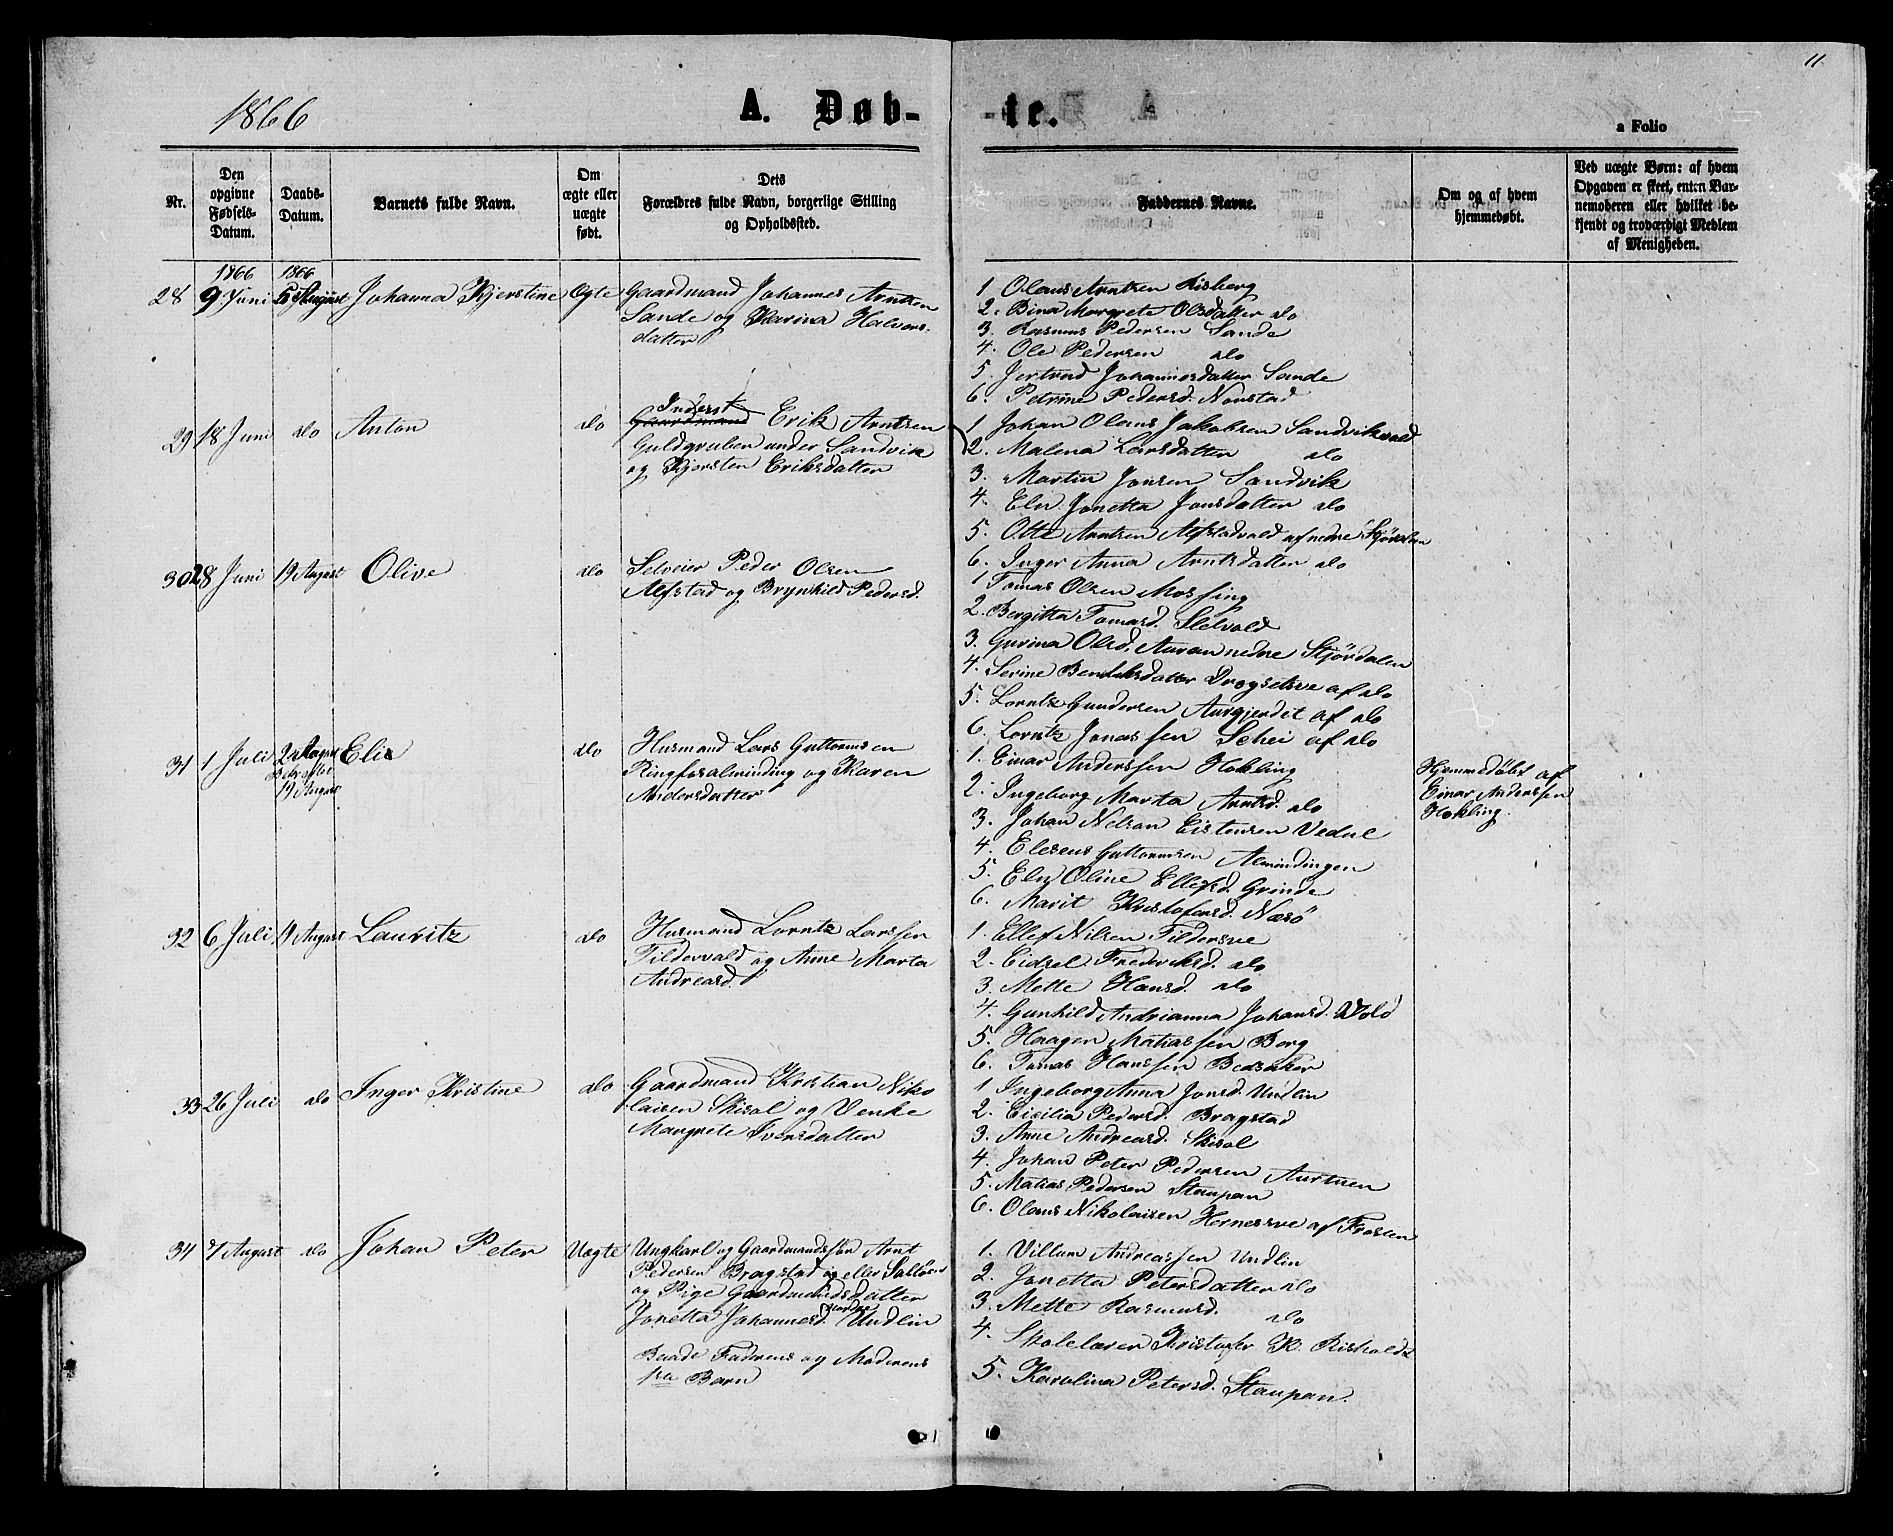 11
1866
A. Døb-
-te.
a Folio
Nr.
Den
opgivne
Fødsels-
Datum.
Daabs-
Datum.
Barnets fulde Navn.
Om
ægte eller
uægte
født.
Dets
Forældres fulde Navn, borgerlige Stilling
og Opholdssted.
Faddernes Navne.
Om og af hvem
hjemmedøbt.
Ved uægte Børn: af hvem
Opgaven er skeet, enten Bar-
nemoderen eller hvilket be-
kjendt og troværdigt Medlem
af Menigheden.
1866
1866
28 9 Juni 5 August Johanna Kjerstine Ægte
Gaardmand Johannes Arntsen
Sande og Karina Halvors-
datter
1 Olaus Arntsen Risberg
2. Bina Margrete Olsdatter do
3. Rasmus Pedersen Sande
4. Ole Pedersen do
5. Jertrud Johannesdatter Sande
6. Petrine Pedersd. Naustad
29 18 Juni do Anton do
Inderst
Gaardmand Erik Arntsen
Guldgruben under Sandvik
og Kjersten Eriksdatter
1 Johan Olaus Jakobsen Sandvikvald
2. Malena Larsdatter do
3. Martin Jonsen Sandvik
4. Eln Jonetta Jonsdatter do
5. Otte Arntsen Alfstadvald af nedre Stjørdalen
6. Inger Anna Arntsdatter do
30 28 Juni 19 August Olive do
Selveier Peder Olsen
Alfstad og Brynhild Pedersd.
1 Tomas Olsen Mossing
2. Bergitta Tomasd. Slelvold
3. Gurina Olsd. Auran nedre Stjørdalen
4. Serine Bendiksdatter Drogsetsve af do
5. Lorntz Gundersen Aurgjerdet af do
6. Lorntz Jonassen Schei af do
31 1 Juli 2 August Elis do
19 August
Husmand Lars Guttormsen
Ringsaslminding og Karen
Andersdatter
1. Einar Anderssen Hokling
2. Ingeborg Marta Arntsd. do
3. Johan Nelson Eistensen Vedul
4. Eleseus Guttormsen Almindingen
5. Eln Oline Ellefsd. Grinde
6. Marit Kristofersd. Næsø
Hjemmedøbt af
Einar Anderssen
Hokling.
32 6 Juli 19 August Lauritz do
Husmand Lorntz Larssen
Tildervald og Anne Marta
Andreasd.
1. Ellef Nilsen Tildersve
2. Eidsel Frederiksd. do
3. Mette Hansd. do
4. Gunhild Andrianna Johansd. Vold
5. Haagen Matiassen Borg
6. Tomas Hanssen Bedsaker
33 26 Juli do Inger Kristine do
Gaardmand Kristian Niko
laisen Skisol og Venke
Margrete Iversdatter
1 Ingeborg Anna Jonsd. Undlin
2. Cicilia Pedersd. Bragstad
3. Anne Andreasd. Skisol
4. Johan Peter Pedersen Aurtuen
5. Matias Pedersen Staupan
6. Olaus Nikolaisen Hernessve af Frosten
34 7 August do Johan Peter Uægte
Ungkarl og Gaardmandssøn Arnt
Pedersen Bragstad
og Pige Gaardmandsdatter
Jonetta Johannesd. Undlin
Baade Faderens og Moderens
Barn
1. Villum Andreassen Undlin
2. Jonetta Petersdatter do
3. Mette Rasmusd. do
4. Skolelærer Kristofer K. Risholdt
5. Karolina Petersd. Staupan.